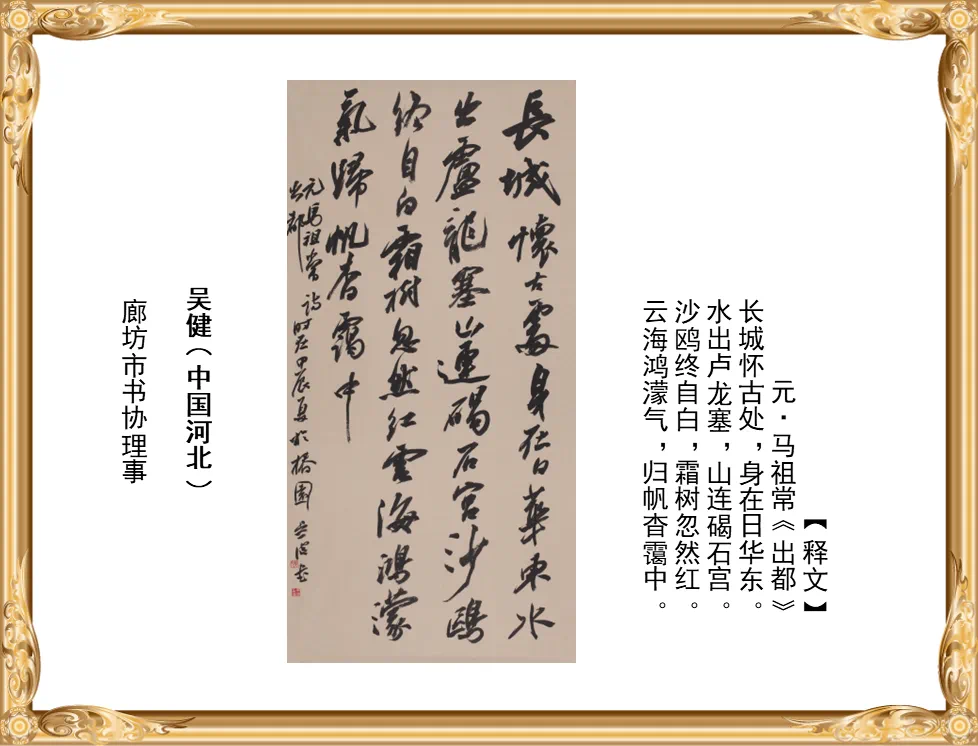 【释文】
元·马祖常《出都》
长城怀古处，身在日华东。
水出卢龙塞，山连碣石宫。
沙鸥终自白，霜树忽然红。
云海鸿濛气，归帆杳霭中。
長城懷古處身在日華東水
出盧龍塞山連碣石宮沙鷗
終自白霜樹忽然红雲海鴻濛
氣歸帆杳靄中
元馬祖常詩時在甲辰夏於橋園
出都
吴健（中国河北）
廊坊市书协理事